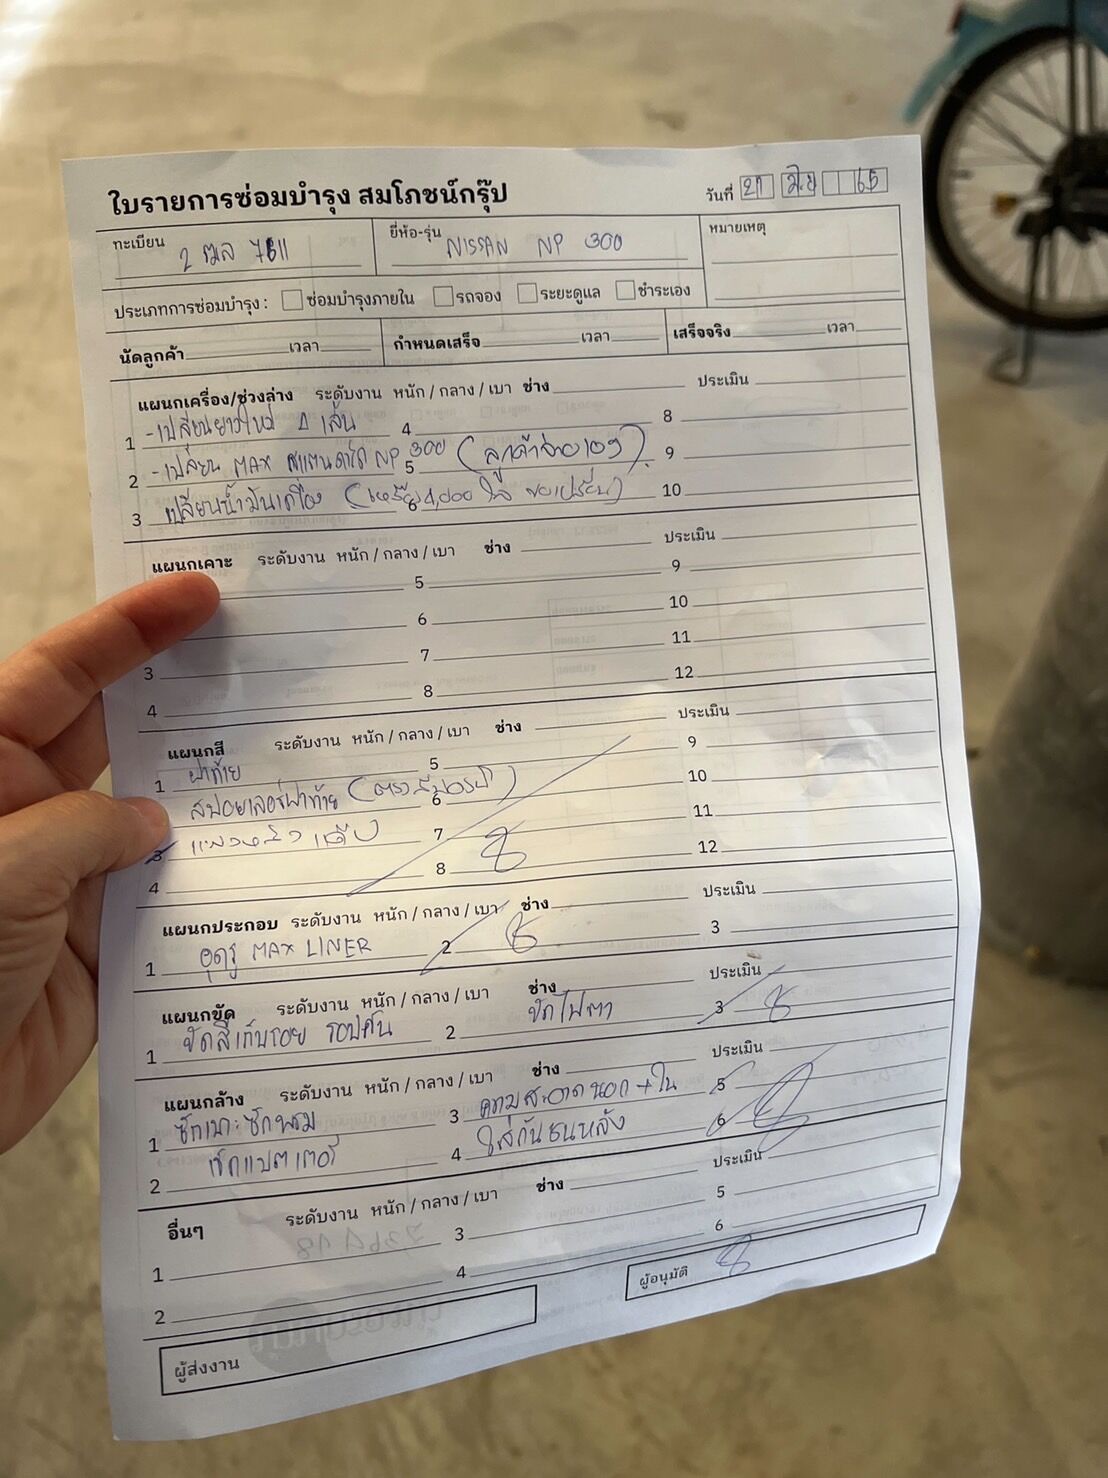 ใบรายการซ่อมบำรุง สมโภชน์กรุ๊ป
วันที่ 21 มิ.ย 65
ทะเบียน 2 ฒล 7611
ยี่ห้อ-รุ่น NISSAN NP 300
หมายเหตุ
ประเภทการซ่อมบำรุง : ซ่อมบำรุงภายใน รถจอง ระยะดูแล ชำระเอง
นัดลูกค้า เวลา กำหนดเสร็จ เวลา เสร็จจริง เวลา
แผนกเครื่อง/ช่วงล่าง ระดับงาน หนัก / กลาง / เบา ช่าง ประเมิน
1 -เปลี่ยนยางใหม่ 4 เส้น 4 8
2 -เปลี่ยน MAX สแตนดาร์ด NP 300 5 (ลูกค้าจ่ายเอง) 9
3 เปลี่ยนน้ำมันเครื่อง ( 4,000 ) 10
แผนกเคาะ ระดับงาน หนัก / กลาง / เบา ช่าง ประเมิน
5 9
6 10
3 7 11
4 8 12
แผนกสี ระดับงาน หนัก / กลาง / เบา ช่าง ประเมิน
1 ฝาท้าย 5 9
สปอยเลอร์ฝาท้าย 6 10
3 7 11
4 8 12
แผนกประกอบ ระดับงาน หนัก / กลาง / เบา ช่าง ประเมิน
1 อุดรู MAX LINER 2 3
แผนกขัด ระดับงาน หนัก / กลาง / เบา ช่าง ประเมิน
1 ขัดสีเก็บรอย รอบคัน 2 ขัดไฟตา 3
แผนกล้าง ระดับงาน หนัก / กลาง / เบา ช่าง ประเมิน
1 ซักเบาะ ซักพรม 3 ความสะอาดนอก + ใน 5
2 เช็คแบตเตอรี่ 4 ใส่กันชนหลัง 6
อื่นๆ ระดับงาน หนัก / กลาง / เบา ช่าง ประเมิน
1 3 5
2 4 6
ผู้ส่งงาน ผู้อนุมัติ